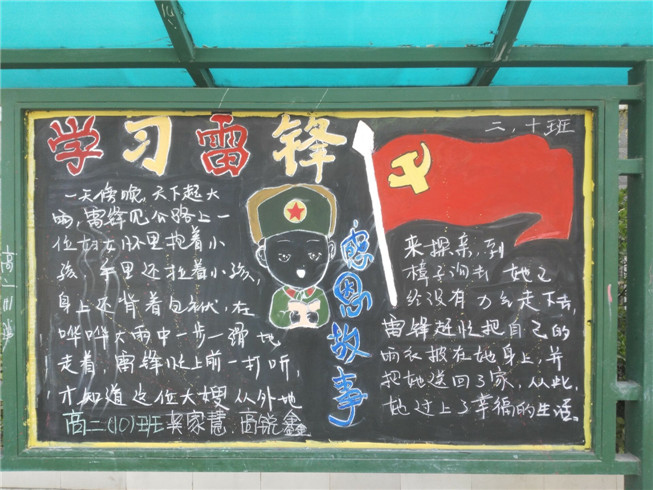 学习雷锋
二、十班
一天傍晚，天下起大
雨，雷锋见公路上一
位妇女怀里抱着小
孩，手里还拉着小孩，
身上还背着包袱，在
哗哗大雨中一步一滑地
走着，雷锋忙上前一打听，
才知道这位大嫂从外地
高二(10)班 家慧、高锐鑫
感恩故事
来探亲，到
她已
经没有力气走下去，
雷锋赶忙把自己的
雨衣披在她身上，并
把她送回了家，从此，
她过上了幸福的生活。